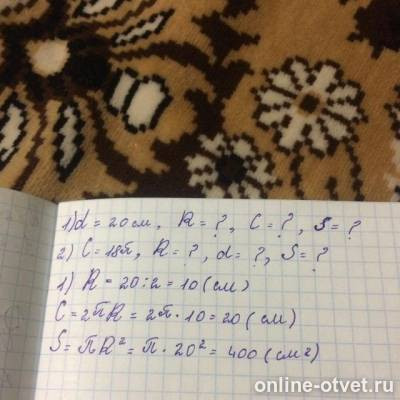 1) d = 20 см, R = ?, C = ?, S = ?
2) C = 18π, R = ?, d = ?, S = ?
1) R = 20 : 2 = 10 (см)
C = 2πR = 2π · 10 = 20 (см)
S = πR² = π · 20² = 400 (см²)
online-otvet.ru